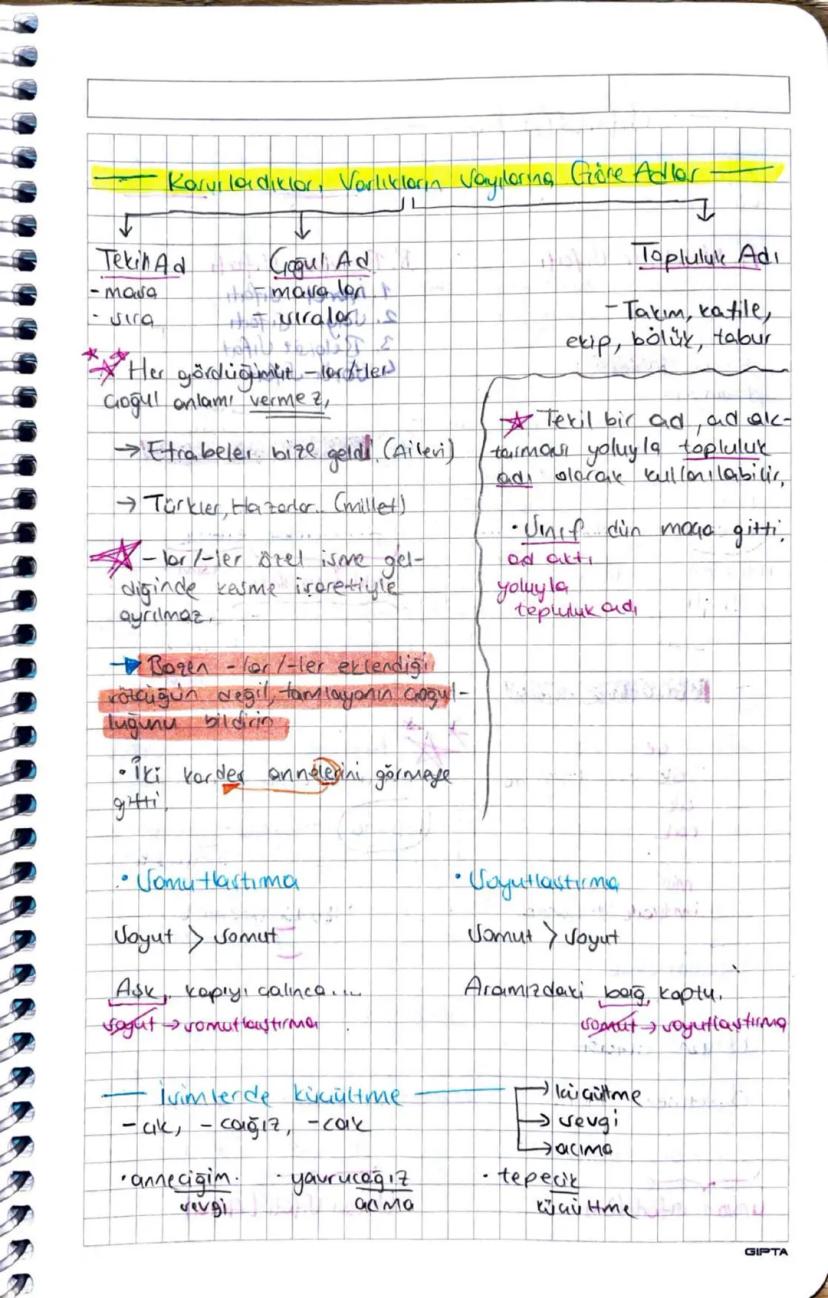 Karşıladıkları Varlıkların Sayılarına Göre Adlar
Tekil Ad
- masa
- sıra
Çoğul Ad
- masalar
- sıralar
Topluluk Adı
- Takım, kafile,
ekip, bölük, tabur
Her gördüğümüz -lar/-ler
çoğul anlamı vermez,
→ Efrabeler bize geldi. (Ailevi)
→ Türkler, Hazarlar.. (millet)
-lar/-ler özel isme gel-
diğinde kesme işaretiyle
ayrılmaz.
→ Bazen -lar/-ler eklendiği
sözcüğün değil, tamlayanın çoğul-
luğunu bildirir.
• İki kardeş annelerini görmeye
gitti.
Tekil bir ad, ad ak-
tarması yoluyla topluluk
adı olarak kullanılabilir.
• Sınıf dün maça gitti.
ad aktı
yoluyla
topluluk adı
• Somutlaştıma
Soyut > somut
Aşk, kapıyı çalınca....
soyut → somutlaştırma
• Soyutlaştırma
Somut > soyut
Aramızdaki bağ, koptu.
somut → soyutlaştırma
İsimlerde küçültme
→ küçültme
→ sevgi
→ acıma
-cık, -cağız, -cak
• anneciğim.
sevgi
• yavrucağız
acıma
• tepecik
küçültme
GIPTA